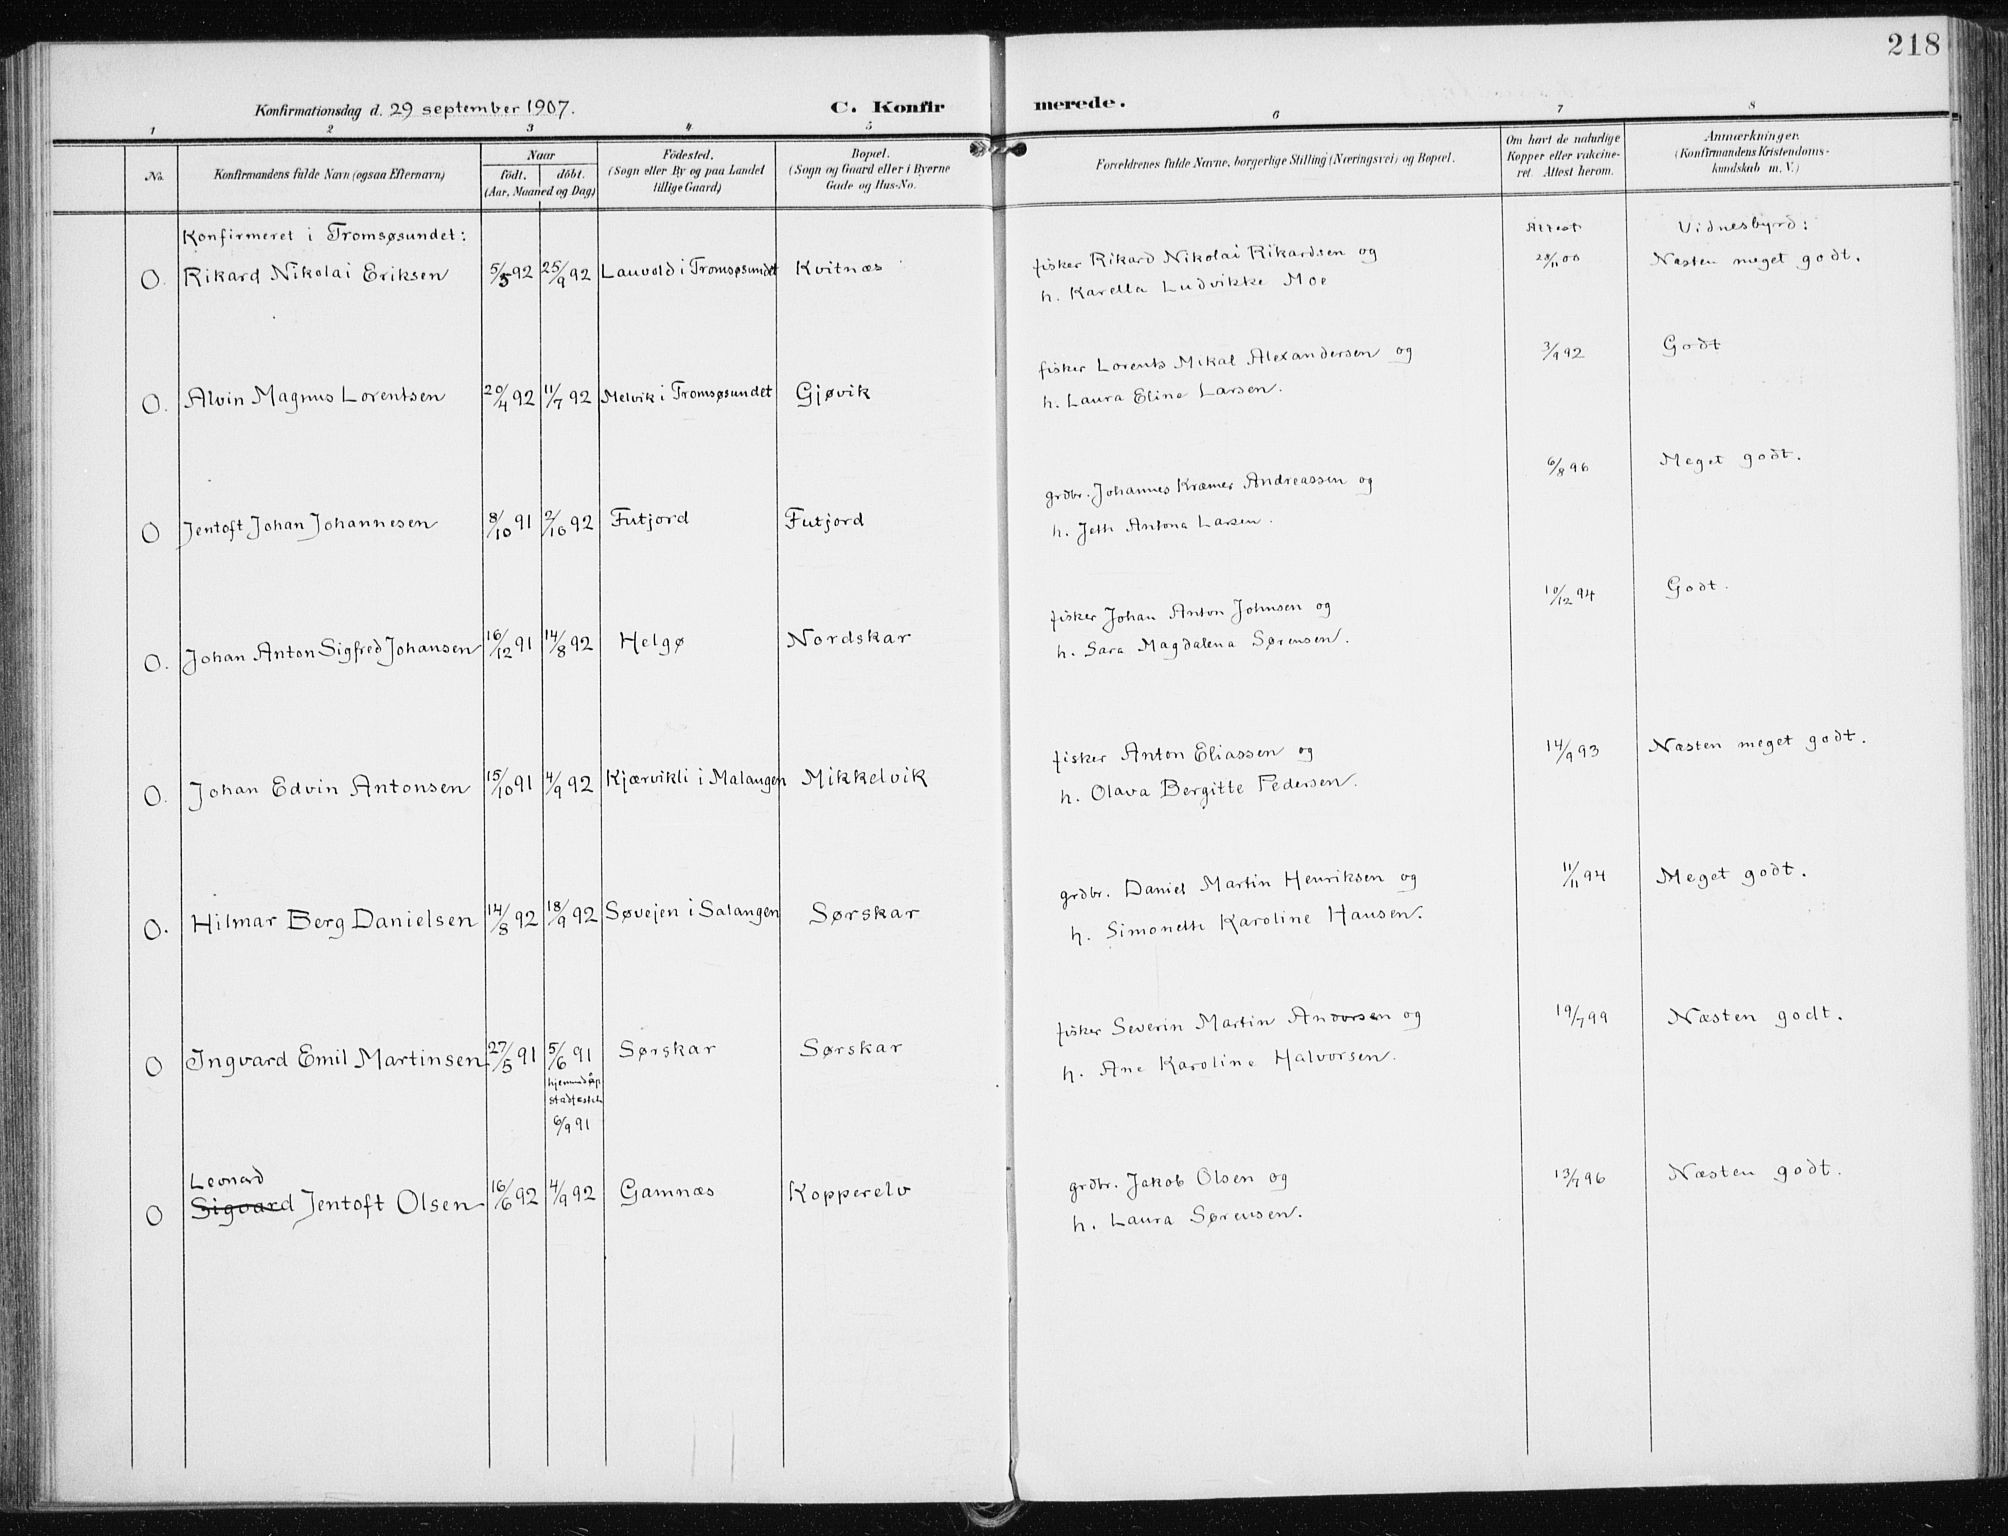 218
Konfirmationsdag d. 29 september 1907.
C. Konfir merede.
1 2 3 4 5 6 7 8
No.
Konfirmandens fulde Navn (ogsaa Efternavn)
Naar
födt. döbt.
(Aar, Maaned og Dag)
Födested.
(Sogn eller By og paa Landet
tillige Gaard)
Bopæl.
(Sogn og Gaard eller i Byerne
Gade og Hus-No.
Forældrenes fulde Navne, borgerlige Stilling (Næringsvei) og Bopæl.
Om havt de naturlige
Kopper eller vakcine-
ret. Attest herom.
Anmærkninger.
(Konfirmandens Kristendoms-
kundskab m. V.)
Konfirmeret i Tromsøsundet: Attest Vidnesbyrd:
O. Rikard Nikolai Eriksen 5/5 92 25/9 92 Lauvold i Tromsøsundet Kvitnæs fisker Rikard Nikolai Rikardsen og 28/11 00 Næsten meget godt.
h. Karella Ludvikke Moe
O. Alvin Magnus Lorentsen 20/4 92 11/7 92 Melvik i Tromsøsundet Gjøvik fisker Lorents Mikal Alexandersen og 3/9 92 Godt
h. Laura Eline Larsen.
O Jentoft Johan Johannesen 8/10 91 2/10 92 Futjord Futjord grdbr. Johannes Kræmer Andreassen og 6/8 96 Meget godt.
h. Jeth Antona Larsen.
O. Johan Anton Sigfred Johansen 16/12 91 14/8 92 Helgø Nordskar fisker Johan Anton Johnsen og 10/12 94 Godt.
h. Sara Magdalena Sørensen.
O. Johan Edvin Antonsen 15/10 91 4/9 92 Kjærvikli i Malangen Mikkelvik fisker Anton Eliassen og 14/9 93 Næsten meget godt.
h. Olava Bergitte Pedersen.
O. Hilmar Berg Danielsen 14/8 92 18/9 92 Søvejen i Salangen Sørskar grdbr. Daniel Martin Henriksen og 11/11 94 Meget godt.
h. Simonette Karoline Hansen.
O Ingvard Emil Martinsen 27/5 91 5/6 91 Sørskar Sørskar fisker Severin Martin Andorsen og 19/7 99 Næsten godt.
hjemmedøp
h. Ane Karoline Halvorsen.
6/9 91
Leonard
O Sigvard Jentoft Olsen 16/6 92 4/9 92 Gamnæs Kopperelv grdbr. Jakob Olsen og 13/7 96 Næsten godt.
h. Laura Sørensen.